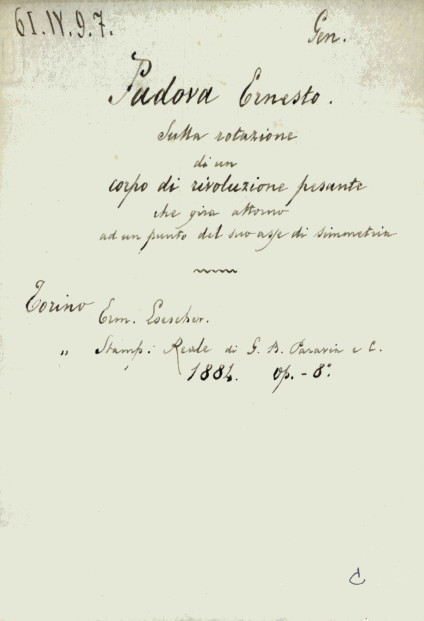 61.IV.9.7.
Gen.
Padova Ernesto.
Sulla rotazione
di un
corpo di rivoluzione pesante
che gira attorno
ad un punto del suo asse di simmetria
Torino Erm. Loescher.
" Stamp: Reale di G. B. Paravia e C.
1884. op. - 8°.
C